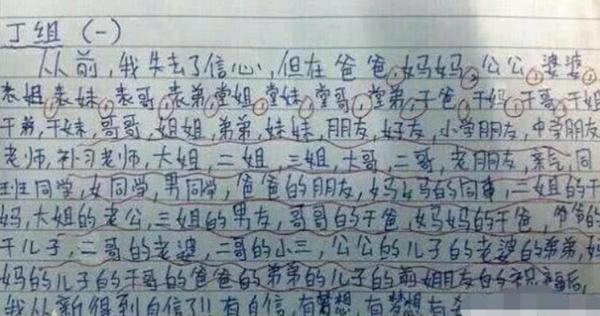 丁组(一)
从前,我失去了信心,但在爸爸,妈妈,公公,婆婆,
表姐,表妹,表哥,表弟,堂姐,堂妹,堂哥,堂弟,干爸,干妈,干哥,干姐
干弟,干妹,哥哥,姐姐,弟弟,妹妹,朋友,好友,小学朋友,中学朋友
老师,补习老师,大姐,二姐,三姐,大哥,二哥,老朋友,亲戚,同
班同学,女同学,男同学,爸爸的朋友,妈妈的同事,二姐的干
妈,大姐的老公,三姐的男友,哥哥的干爸,妈妈的干爸,爷爷的
干儿子,二哥的老婆,二哥的小三,公公的儿子的老婆的弟弟,妈
妈的儿子的干哥的爸爸的弟弟的儿子的前女朋友的祝福后,
我从新得到自信了!!有自信,有梦想,有梦想有